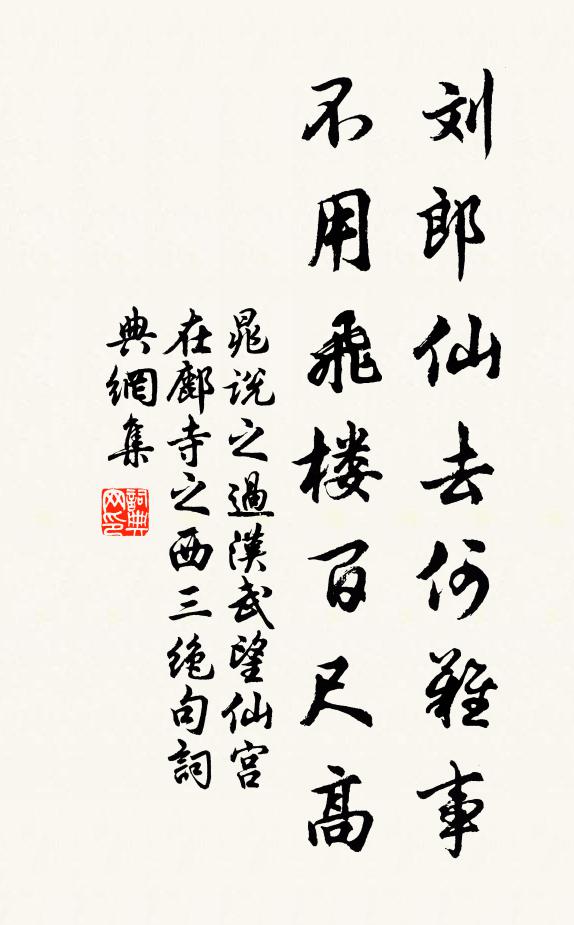 刘郎仙去何難事
不用飛楼百尺高
晁说之過漢武望仙宫
在鄜寺之西三绝句詞
典網集
詞典网印